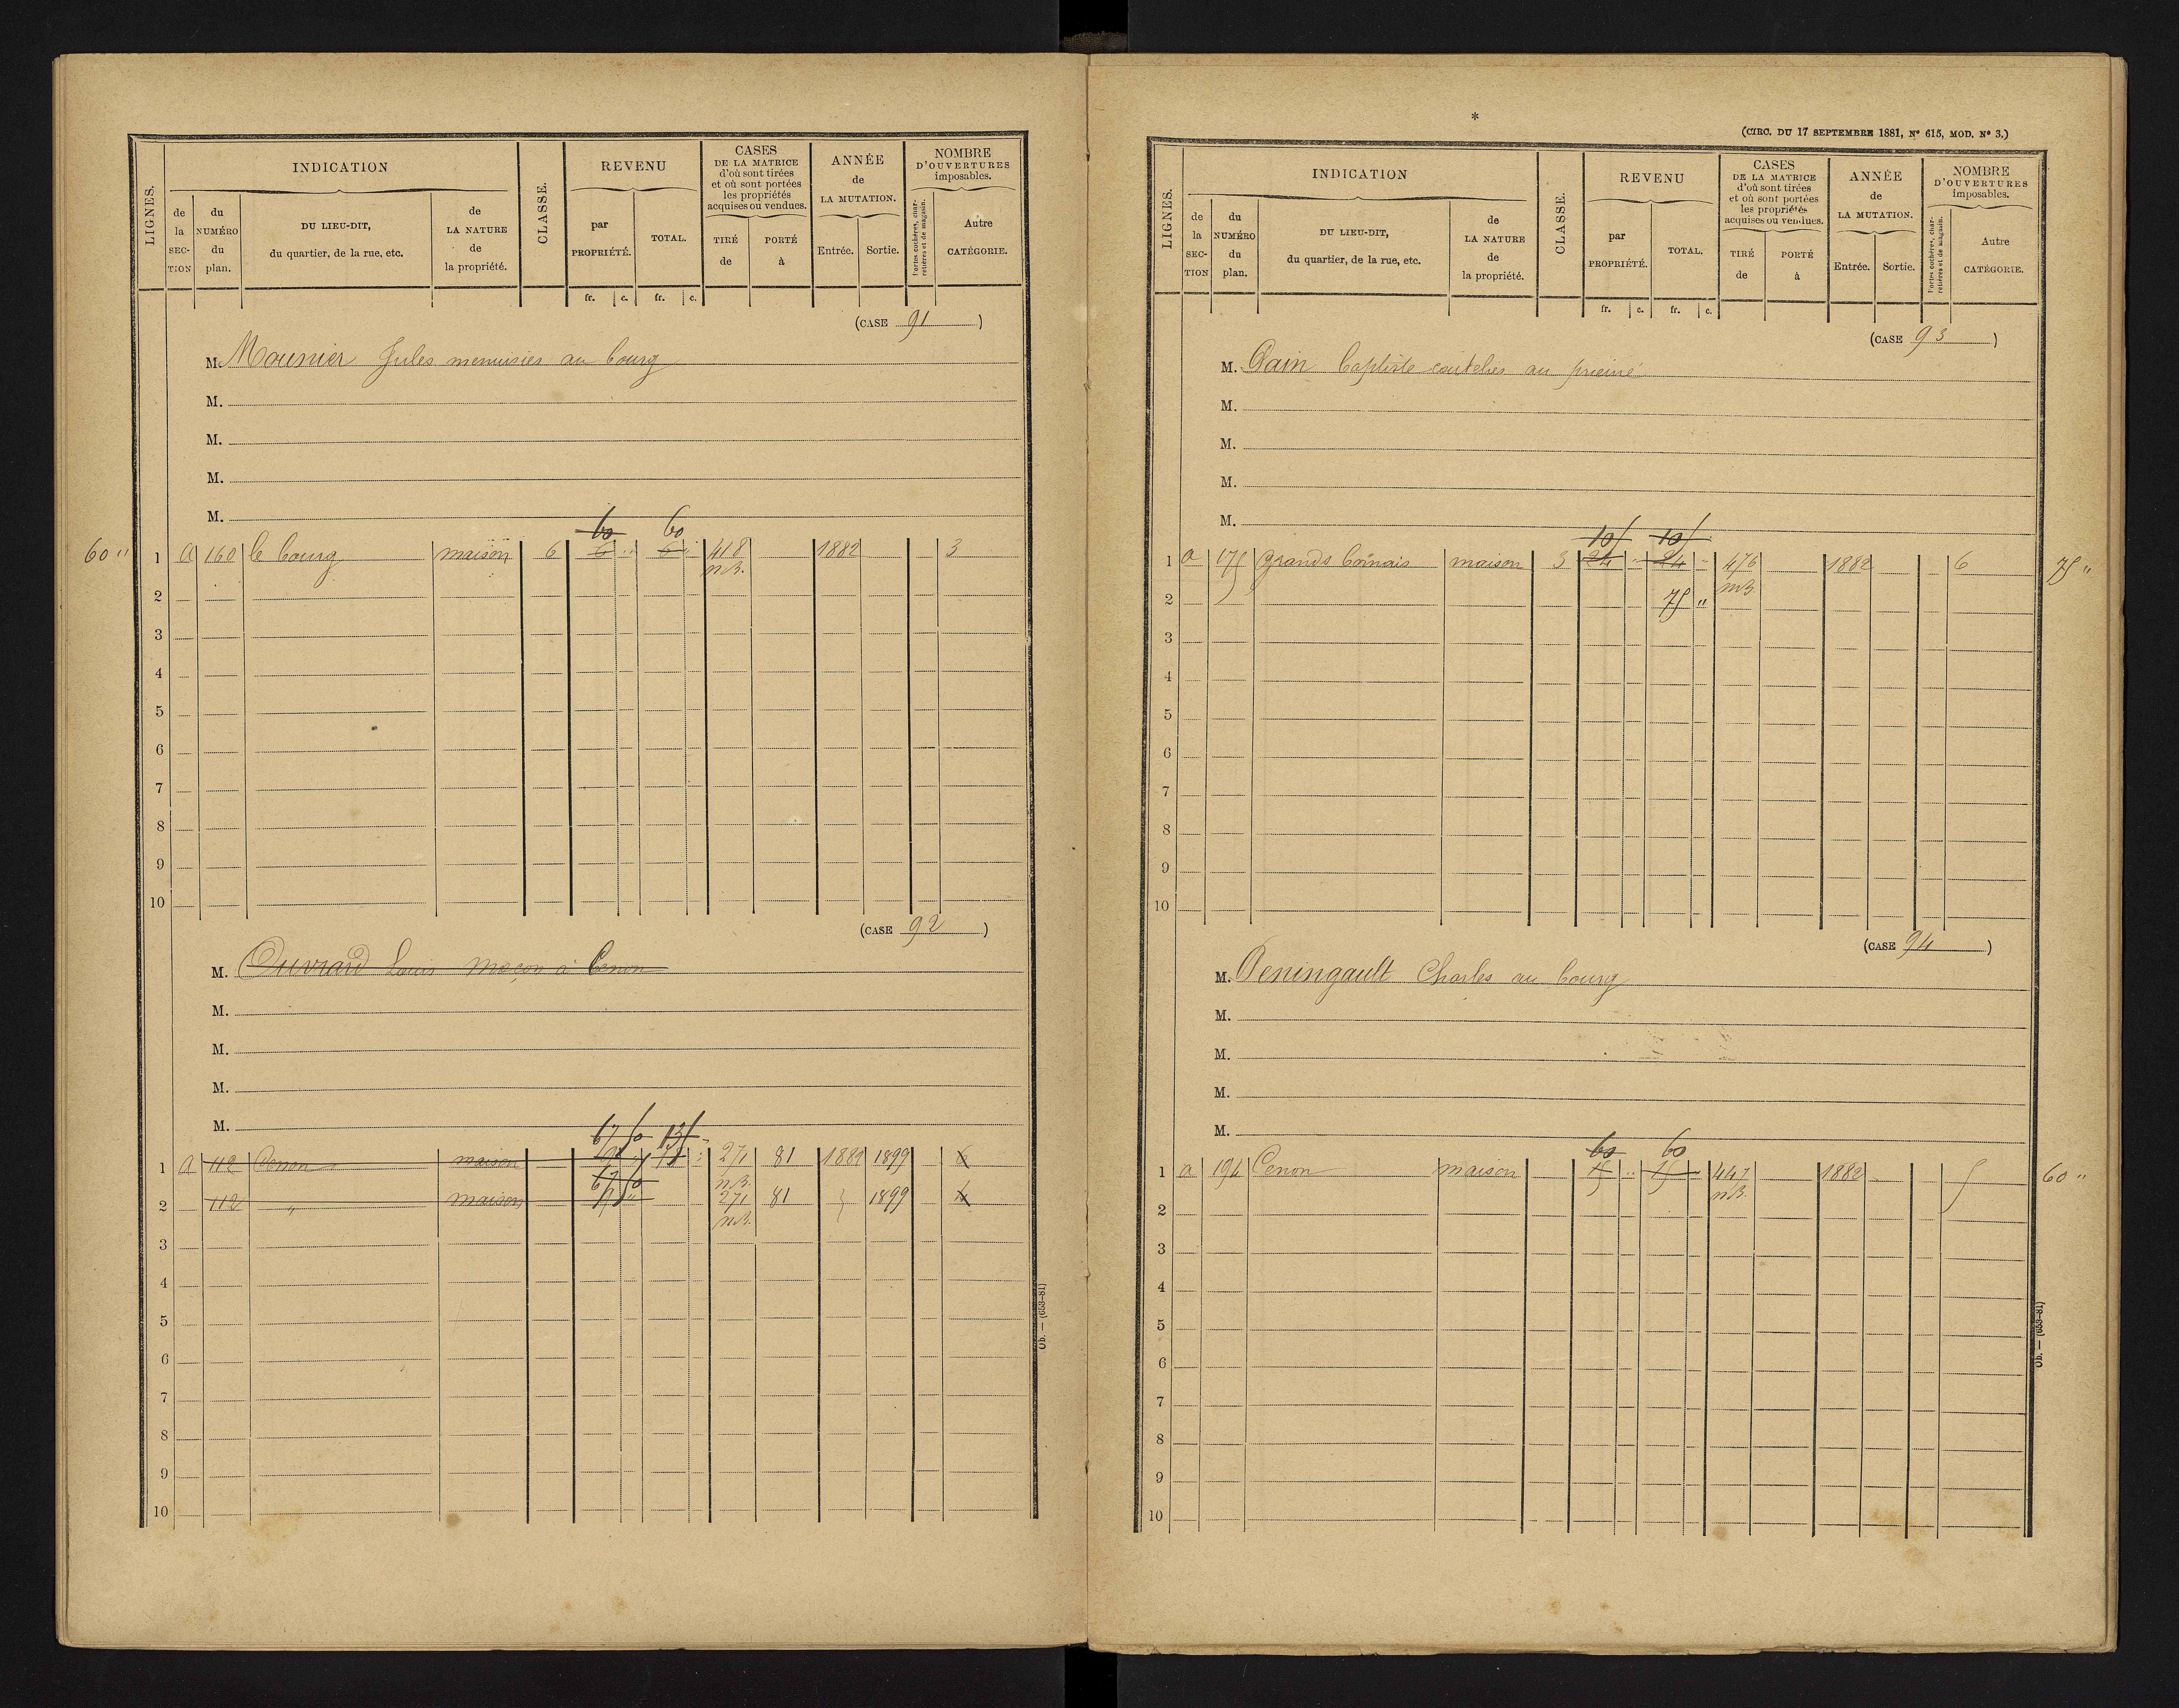 LIGNES.
INDICATION
de la SECTION
du NUMÉRO du plan.
DU LIEU-DIT, du quartier, de la rue, etc.
de LA NATURE de la propriété.
CLASSE.
REVENU
par PROPRIÉTÉ.
TOTAL.
CASES DE LA MATRICE d'où sont tirées et où sont portées les propriétés acquises ou vendues.
TIRÉ de
PORTÉ à
ANNÉE de LA MUTATION.
Entrée.
Sortie.
NOMBRE D'OUVERTURES imposables.
Portes cochères, charretières et de magasin.
Autre CATÉGORIE.
fr. c. fr. c.
(CASE 91)
M. Mounier Jules menuisier au bourg
M.
M.
M.
M.
60 60
60 " 1 a 160 le bourg maison 6 6 " 6 " 418 1882 3
n.B.
2
3
4
5
6
7
8
9
10
(CASE 92)
M. Ouvrard Louis maçon à Cenon
M.
M.
M.
M.
67 50 135
1 A 112 Cenon maison 271 81 1882 1899 6
67 50 n.B.
2 112 " maison 271 81 1899
n.B.
3
4
5
6
7
8
9
10
Ob. — (653-81)
*
(CIRC. DU 17 SEPTEMBRE 1881, Nº 615, MOD. Nº 3.)
LIGNES.
INDICATION
de la SECTION
du NUMÉRO du plan.
DU LIEU-DIT, du quartier, de la rue, etc.
de LA NATURE de la propriété.
CLASSE.
REVENU
par PROPRIÉTÉ.
TOTAL.
CASES DE LA MATRICE d'où sont tirées et où sont portées les propriétés acquises ou vendues.
TIRÉ de
PORTÉ à
ANNÉE de LA MUTATION.
Entrée.
Sortie.
NOMBRE D'OUVERTURES imposables.
Portes cochères, charretières et de magasin.
Autre CATÉGORIE.
fr. c. fr. c.
(CASE 93)
M. Pain baptiste coutelier au prieuré
M.
M.
M.
M.
105 105
1 a 175 grands bornais maison 3 24 " 24 " 476 1882 6 75 "
2 75 " n.B.
3
4
5
6
7
8
9
10
(CASE 94)
M. Peningault Charles au bourg
M.
M.
M.
M.
60 60
1 a 194 Cenon maison 15 " 15 447 1882 5 60 "
n.B.
2
3
4
5
6
7
8
9
10
Ob. — (653-81)